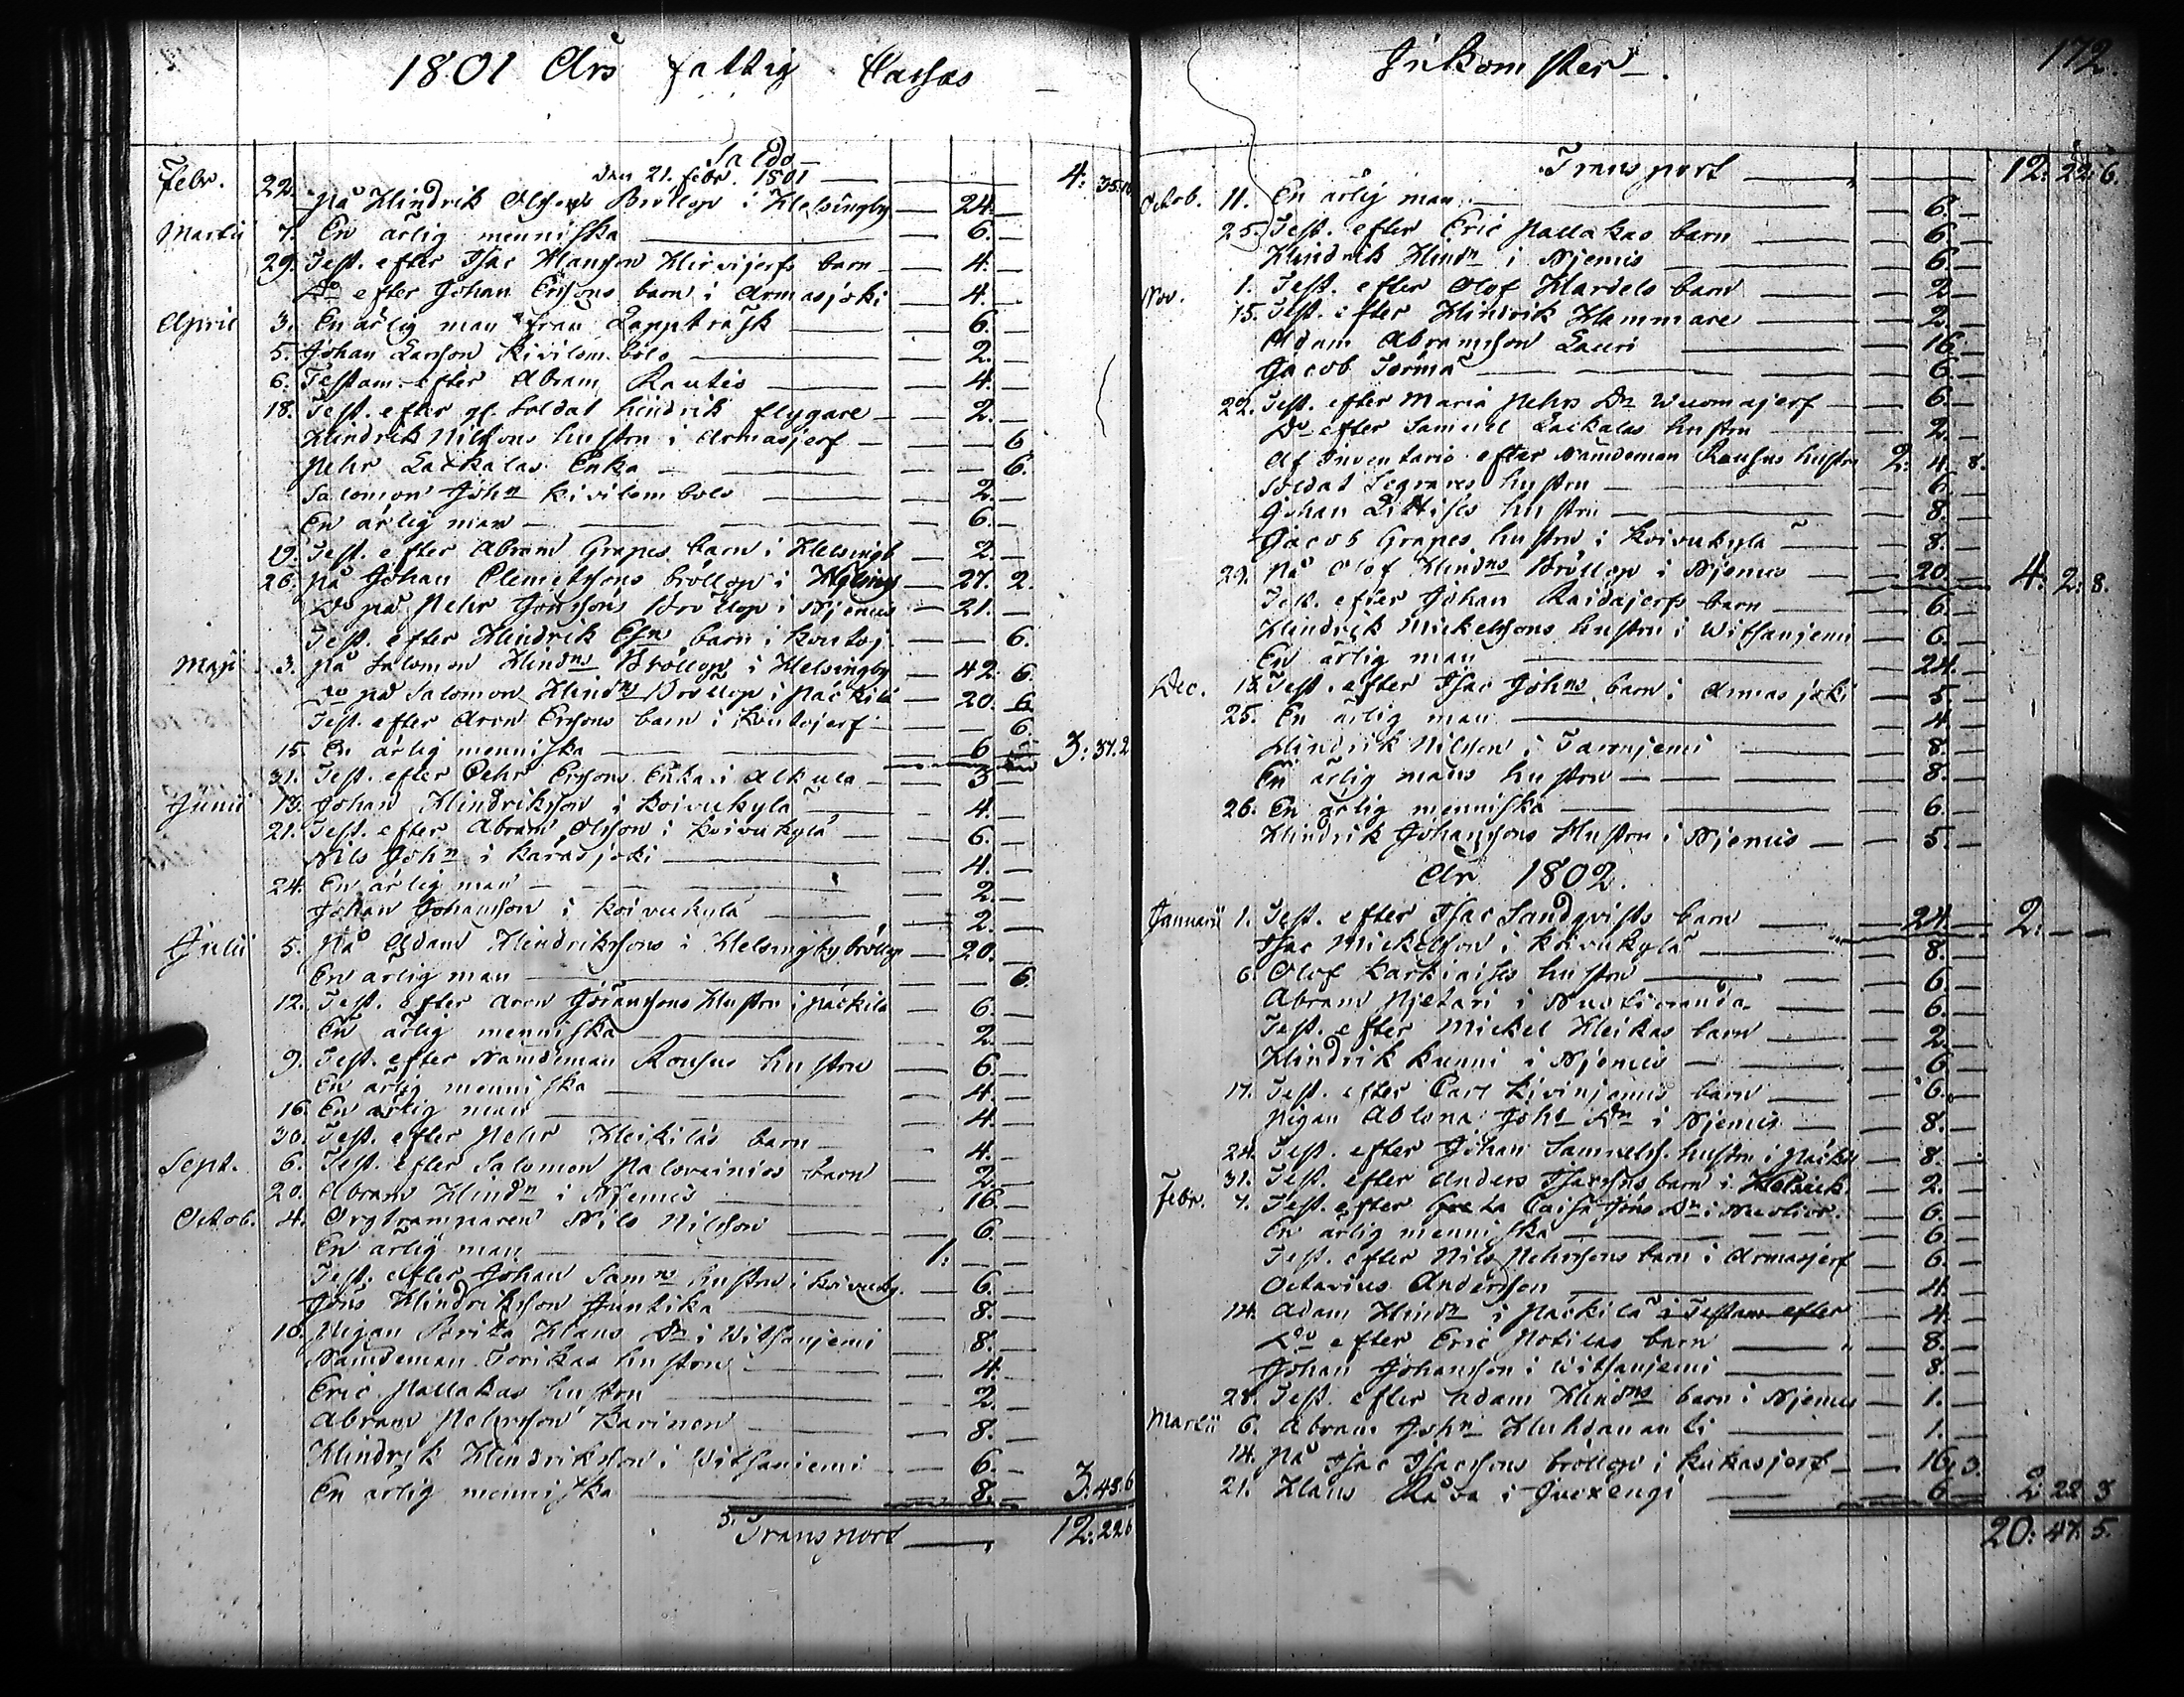 1801 Års fattig Cassas
Saldo
den 21. Febr. 1801 4: 35.10
Febr. 22. På Hindrik Olssons Bröllop i Helsingby 24.
Martii 7. En ärlig menniska 6.
29. Test. efter Isac Hansson Hirvijerfs barn 4.
Do efter Johan Ersons barn i Armasjoki 4.
April 3. En ärlig man från Lappträsk 6.
5. Johan Larsson Kivilombolo 2.
6. Testam. efter Abram Rautio 4.
18. Test. efter gl. Soldat Hindrik flygare 2.
Hindrik Nilssons hustru i Armasjerf 6
Pehr Lackalas Enka 6.
Salomon John Kivilombolo 2.
En ärlig man 6.
19. Test. efter Abram Grapes barn i Helsingb 2
26. På Johan Clemetssons bröllop i Helsing 27. 2.
Do på Pehr Jönssons Bröllop i Njemis 21.
Test. efter Hindrik Esn barn i Kuitoj. 6.
Maji 3. På Salomon Hindns Bröllop i Helsingby 42. 6.
Do på Salomon Hindns Bröllop i Päckilä 20. 6
Test. efter Aron Ersons barn i Kuitojerf 6
15. En ärlig menniska 6 3: 37.2
31. Test. efter Pehr Ersons Enka i Alkula 3
Junii 13. Johan Hindriksson i Koivukylä 4.
21. Test. efter Abram Olsson i Koivukylä 6.
Nils John i Karasjoki 4.
24. En ärlig man 2.
Johan Johansson i Koivukylä 2.
Julii 5. På Adam Hindrikssons i Helsingby bröllop 20.
En ärlig man 6.
12. Test. efter Aron Göranssons Hustru i Päckilä 6.
En ärlig menniska 2.
9. Test. efter Nämdeman Rousus hustru 6.
En ärlig menniska 4.
16. En ärlig man 4.
30. Test. efter Pehr Heikiläs barn 4.
Sept. 6. Test. efter Salomon Palovainios barn 2.
20. Abram Hindn i Njemis 16.
Octob. 4. Orgtramparen Nils Nilsson 6.
En ärlig man 1:
Test. efter Johan Samns hustru i Koivuky. 6.
Jöns Hindriksson Juntika 8.
10. Pigan Brita Hans Dn i Witsanjemi 8.
Nämdeman Torikas hustru 4.
Eric Pallakas hustru 2.
Abram Pehrsson Karinen 8.
Hindrik Hindriksson i Witsaniemi 6.
En ärlig menniska 8. 3: 48.6
Transport 12: 22 6
Inkomster. 172.
Transport 12: 22: 6.
Octob. 11. En ärlig man 6.
25. Test. efter Eric Pallakas barn 6
Hindrik Hindn i Njemis 6.
Nov. 1. Test. efter Olof Hardels barn 2
15. Test. efter Hindrik Hammare 2
Adam Abramsson Lauri 16.
Jacob Jormā 6.
22. Test. efter Maria Pehrs Dn Wuomajerf 6.
Do efter Samuel Lackalas hustru 2.
Af Inventario efter Nämdeman Rousus hustru 2: 4. 8.
Soldat Segrares hustru 6.
Johan hustru 8.
Jacob Grapes hustru i Koivukylä 8.
29. På Olof Hindns Bröllop i Njemis 20. 4: 2: 8.
Test. efter Johan Raidajerfs barn 6.
Hindrik Mickelssons hustru i Witsanjemi 6.
En ärlig man 24.
Dec. 18. Test. efter Isac Johns barn i Armasjoki 5.
25. En ärlig man 4.
Hindrik Nilsson i Tavonjemi 8.
En ärlig mans hustru 8.
26. En ärlig menniska 6.
Hindrik Johanssons Hustru i Njemis 5.
År 1802.
Januarii 1. Test. efter Isac Sandqvists barn 24. 2.
Isac Mickelsson i Koivukylä 8.
6. Olof Karkiaises hustru 6
Abram Njetari i 6.
Test. efter Mickel Heikas barn 2.
Hindrik Kunni i Njemis 6
17. Test. efter Carl Kivinjemis barn 6.
Pigan Ablona Johs Dn i Njemis 8.
24. Test. efter Johan Samuelss. hustru i Päcki 8.
31. Test. efter Anders Isacssons barn i 2.
Febr. 7. Test. efter Greta Caisa Jöns Dn i 6.
En ärlig menniska 6
Test. efter Nils Pehrssons barn i Armasjerf 6.
Octavius Andersson 4.
14. Adam Hindn i Päckilä i Testam efter 4.
Do efter Eric Potilas barn 8.
Johan Johansson i Witsanjemi 8.
28. Test. efter Adam Hindns barn i Njemis 1.
Martii 6. Abram John Huhdananti 1.
14. På Isac Isacssons bröllop i Kukasjerf 16. 3.
21. Hans Råva i Juoxengi 6 2: 22 3
20: 47: 5.